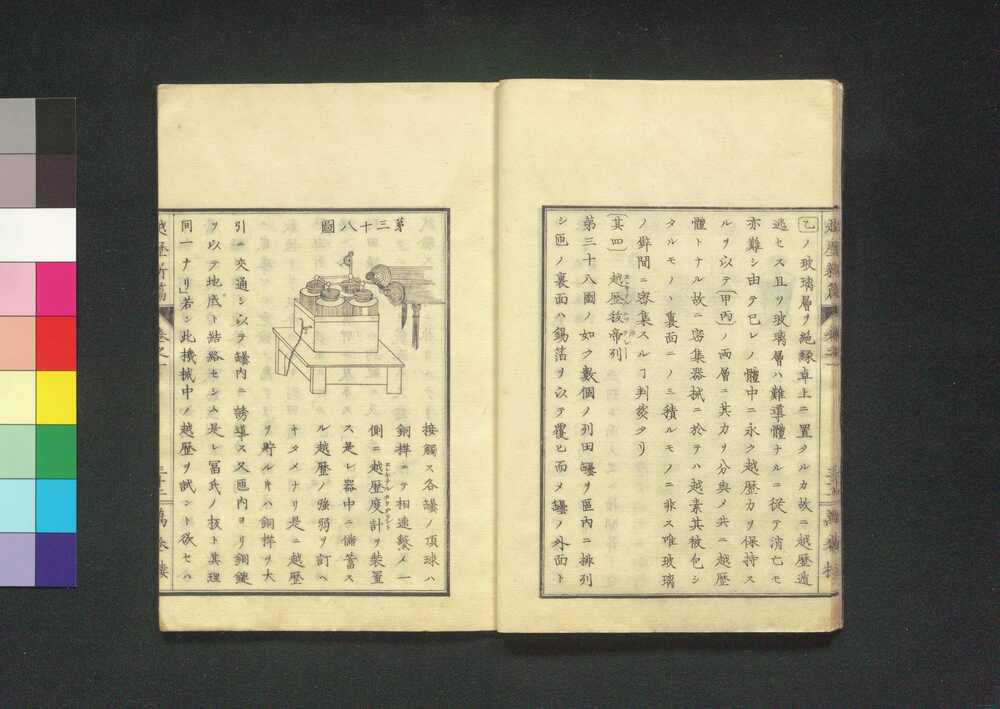 乙ノ玻璃層ヲ絶縁卓上ニ置クルカ故ニ越歴遁
逃セス且ツ玻璃層ハ難導體ナルニ從テ消亡モ
亦難シ由テ已レノ體中ニ永ク越歴力ヲ保持ス
ルヲ以テ甲丙ノ兩層ニ其力ヲ分與メ共ニ越歴
體トナル故ニ密集器械ニ於テハ越素其被包シ
タルモノヽ裏面ニノミ積ルモノニ非ス唯玻璃
ノ
間ニ密集スルヿ判然タリ
其四 越歴抜帝列
第三十八圖ノ如ク數個ノ列田罎ヲ匣內ニ排列
シ匣ノ裏面ハ錫箔ヲ以テ覆ヒ而メ罎ノ外面ト
第三十八圖
接觸ス各罎ノ頂球ハ
銅桿ニテ相連繫メ一
側ニ越歴度計ヲ装置
ス是レ器中ニ
ル越歴ノ強弱ヲ訂ヘ
キタメナリ是ニ越歴
ヲ貯ルキハ銅桿ヲ大
引ニ夾通シ以テ罎內ニ誘導ス又匣內ヨリ銅鏈
ヲ以テ地底ト結絡セシム是レ冨氏ノ板ト其理
同一ナリ若シ此機械中ノ越歴ヲ試ント欲セハ
越歴新篇 卷之一 三十二 萬卷樓